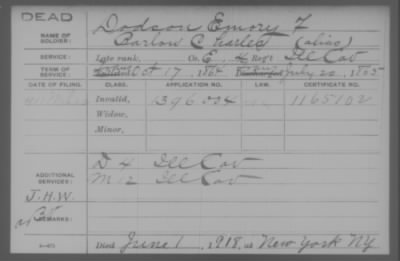 DEAD
NAME OF SOLDIER: Dodson Emory F
Barlow Charles (alias)
SERVICE: Late rank, Co. E, 4 Reg't Ill Cav
TERM OF SERVICE: Oct 17, 186 July 20, 1865
DATE OF FILING. CLASS. APPLICATION NO. LAW. CERTIFICATE NO.
Invalid, 1396004 1165102
Widow,
Minor,
ADDITIONAL SERVICES: D 4 Ill Cav
M 12 Ill Cav
J.H.W.
REMARKS:
Died June 1, 1918, at New York NY